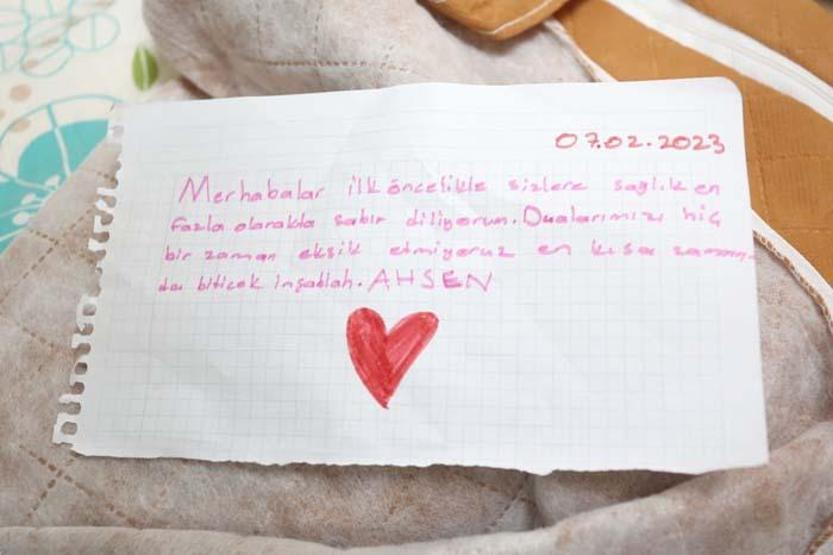 07.02.2023
Merhabalar ilk öncelikle sizlere sağlık en
fazla olarakta sabır diliyorum. Dualarımızı hiç
bir zaman eksik etmiyoruz en kısa zaman
da biticek inşallah. AHSEN